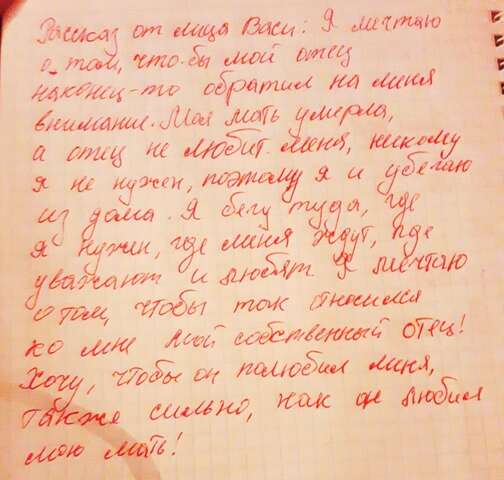 Рассказ от лица Васи: Я мечтаю
о том, что-бы мой отец
наконец-то обратил на меня
внимание. Моя мать умерла,
а отец не любит меня, никому
я не нужен, поэтому я и убегаю
из дома. Я бегу туда, где
я нужен, где меня ждут, где
уважают и любят. Я мечтаю
о том, чтобы так относился
ко мне мой собственный отец!
Хочу, чтобы он полюбил меня,
также сильно, как он любил
мою мать!